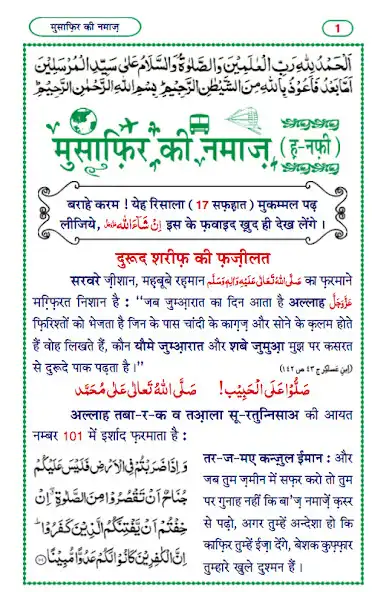 मुसाफ़िर की नमाज़
1
اَلْحَمْدُ لِلّٰهِ رَبِّ الْعٰلَمِيْنَ وَالصَّلٰوةُ وَالسَّلَامُ عَلٰى سَيِّدِ الْمُرْسَلِيْنَ
اَمَّا بَعْدُ فَاَعُوْذُ بِاللّٰهِ مِنَ الشَّيْطٰنِ الرَّجِيْمِ بِسْمِ اللّٰهِ الرَّحْمٰنِ الرَّحِيْمِ
मुसाफ़िर की नमाज़ (ह-नफ़ी)
बराहे करम ! येह रिसाला ( 17 सफ़हात ) मुकम्मल पढ़
लीजिये, اِنْ شَآءَاللّٰه इस के फ़वाइद ख़ुद ही देख लेंगे ।
दुरूद शरीफ़ की फ़ज़ीलत
सरवरे ज़ीशान, महबूबे रहमान صَلَّى اللّٰهُ تَعَالٰى عَلَيْهِ وَاٰلِهٖ وَسَلَّم का फ़रमाने
मग़्फ़िरत निशान है : “जब जुम्आरात का दिन आता है अल्लाह عَزَّوَجَلَّ
फ़िरिश्तों को भेजता है जिन के पास चांदी के काग़ज़ और सोने के क़लम होते
हैं वोह लिखते हैं, कौन यौमे जुम्आरात और शबे जुमुआ मुझ पर कसरत
से दुरूदे पाक पढ़ता है ।” (اِبنِ عَساکِر ج ٤٣ ص ١٤٢)
صَلُّوْا عَلَى الْحَبِيْب! صَلَّى اللّٰهُ تَعَالٰى عَلٰى مُحَمَّد
अल्लाह तबा-र-क व तआ़ला सू-रतुन्निसाअ की आयत
नम्बर 101 में इर्शाद फ़रमाता है :
وَ اِذَا ضَرَبْتُمْ فِی الْاَرْضِ فَلَیْسَ عَلَیْكُمْ
جُنَاحٌ اَنْ تَقْصُرُوْا مِنَ الصَّلٰوةِ ۖ اِنْ
خِفْتُمْ اَنْ یَّفْتِنَكُمُ الَّذِیْنَ كَفَرُوْا ؕ
اِنَّ الْكٰفِرِیْنَ كَانُوْا لَكُمْ عَدُوًّا مُّبِیْنًا (۱۰۱)
तर-ज-मए कन्ज़ुल ईमान : और
जब तुम ज़मीन में सफ़र करो तो तुम
पर गुनाह नहीं कि बा'ज़ नमाज़ें क़स्र
से पढ़ो, अगर तुम्हें अन्देशा हो कि
काफ़िर तुम्हें ईज़ा देंगे, बेशक कुफ़्फ़ार
तुम्हारे खुले दुश्मन हैं ।